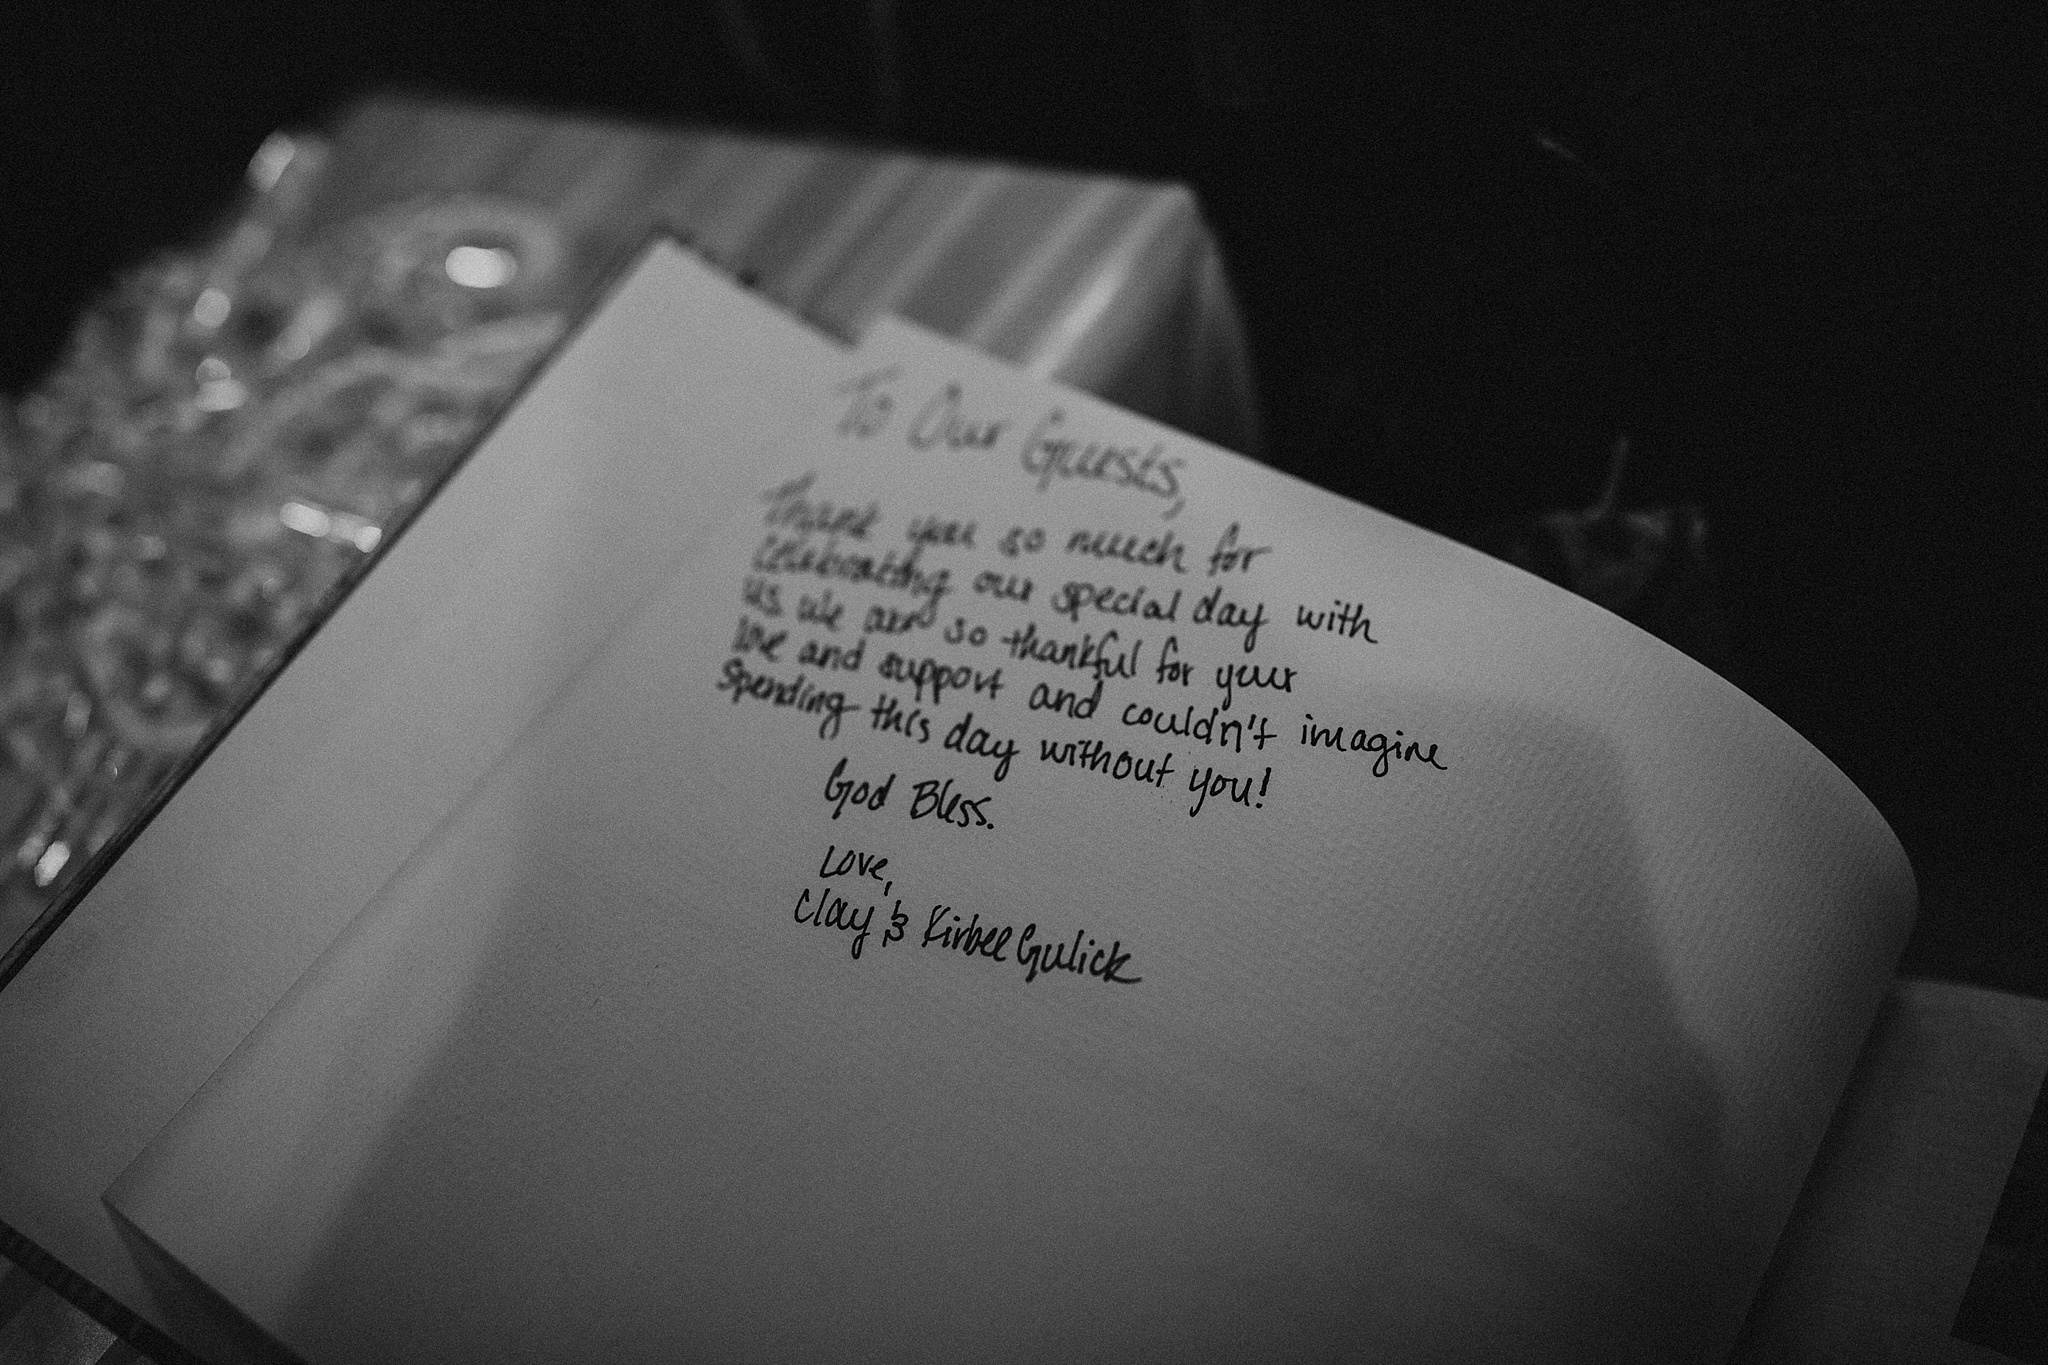 To Our Guests,
Thank you so much for
celebrating our special day with
us. We are so thankful for your
love and support and couldn't imagine
spending this day without you!
God Bless.
Love,
Clay & Kirbee Gulick